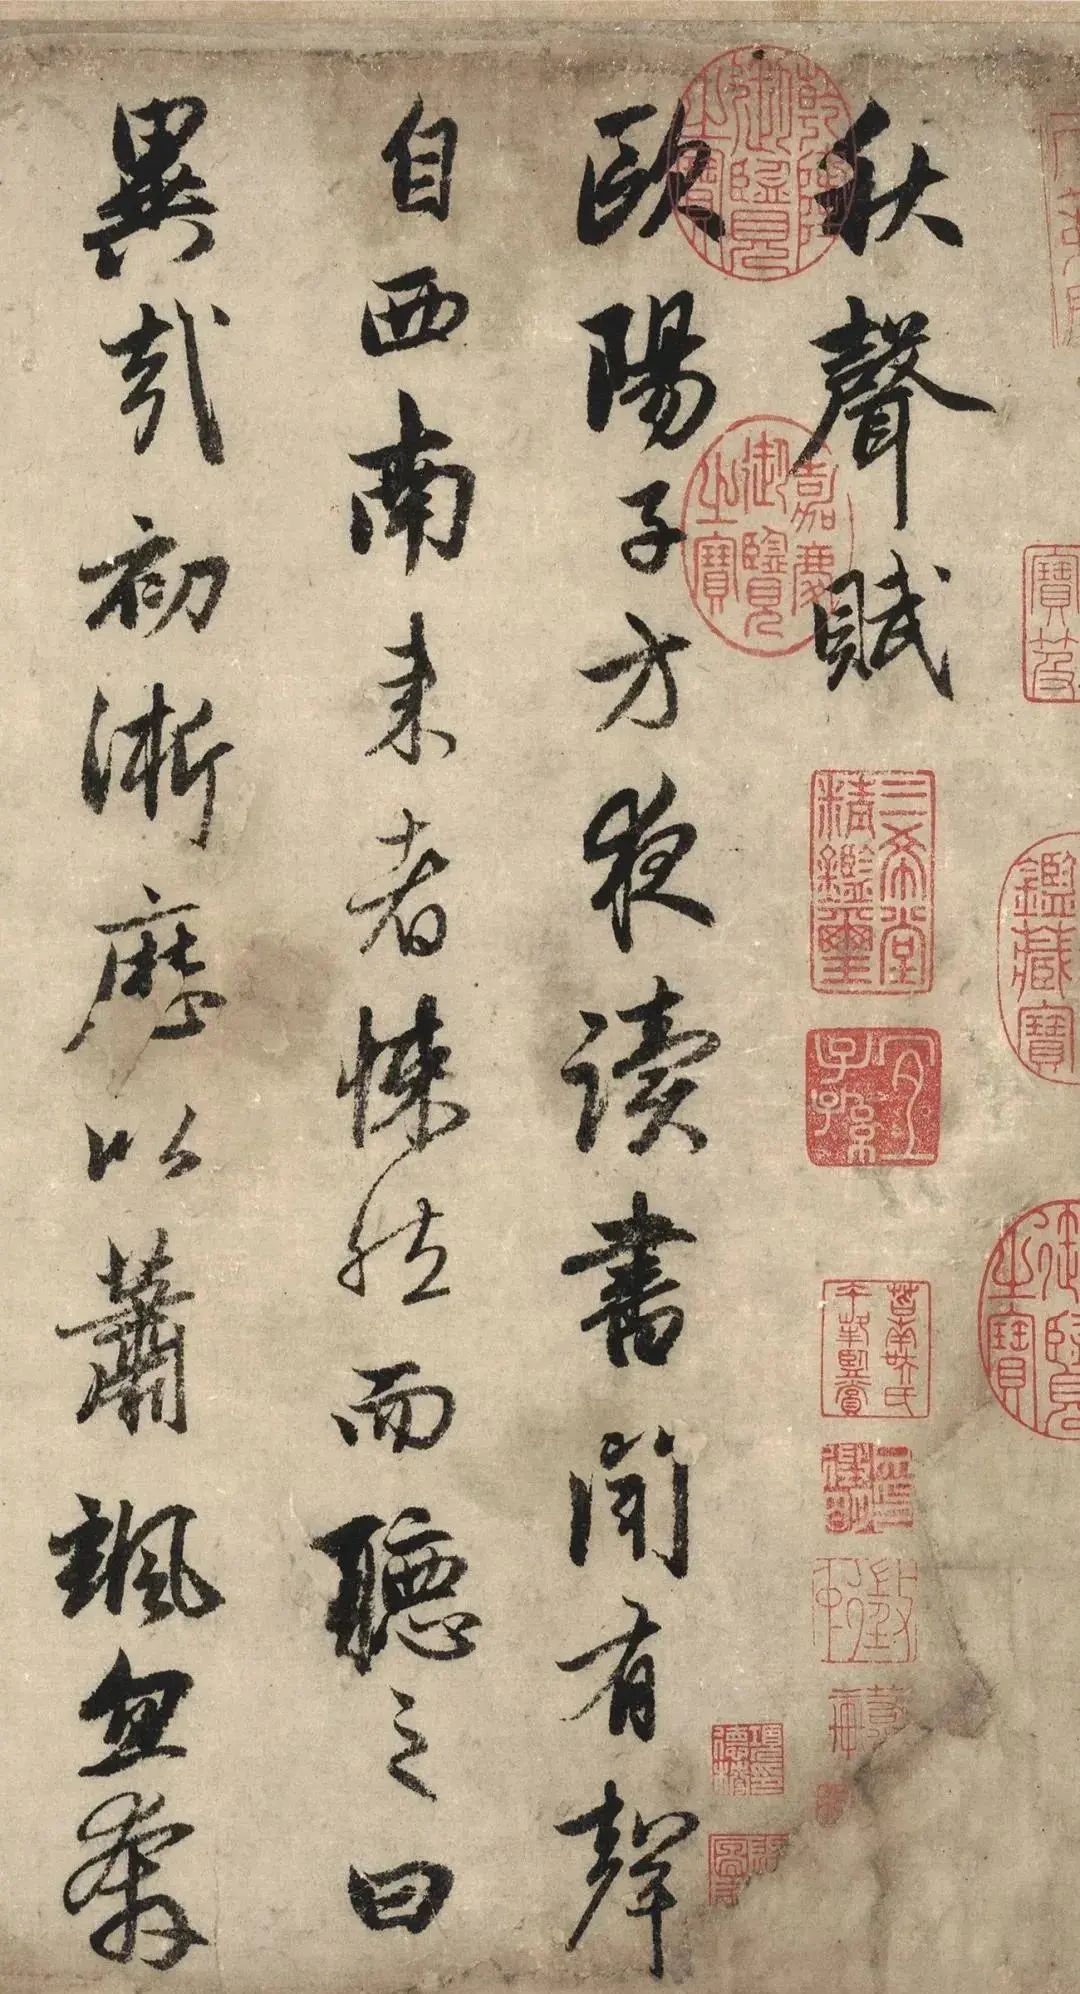 御覽之寶
鑑藏寶
寶笈
秋聲賦
三希堂精鑑璽
宜子孫
乾隆御覽之寶
嘉慶御覽之寶
歐陽子方夜讀書聞有聲
自西南来者悚然而聽之曰
異哉初淅歷以蕭颯忽奔